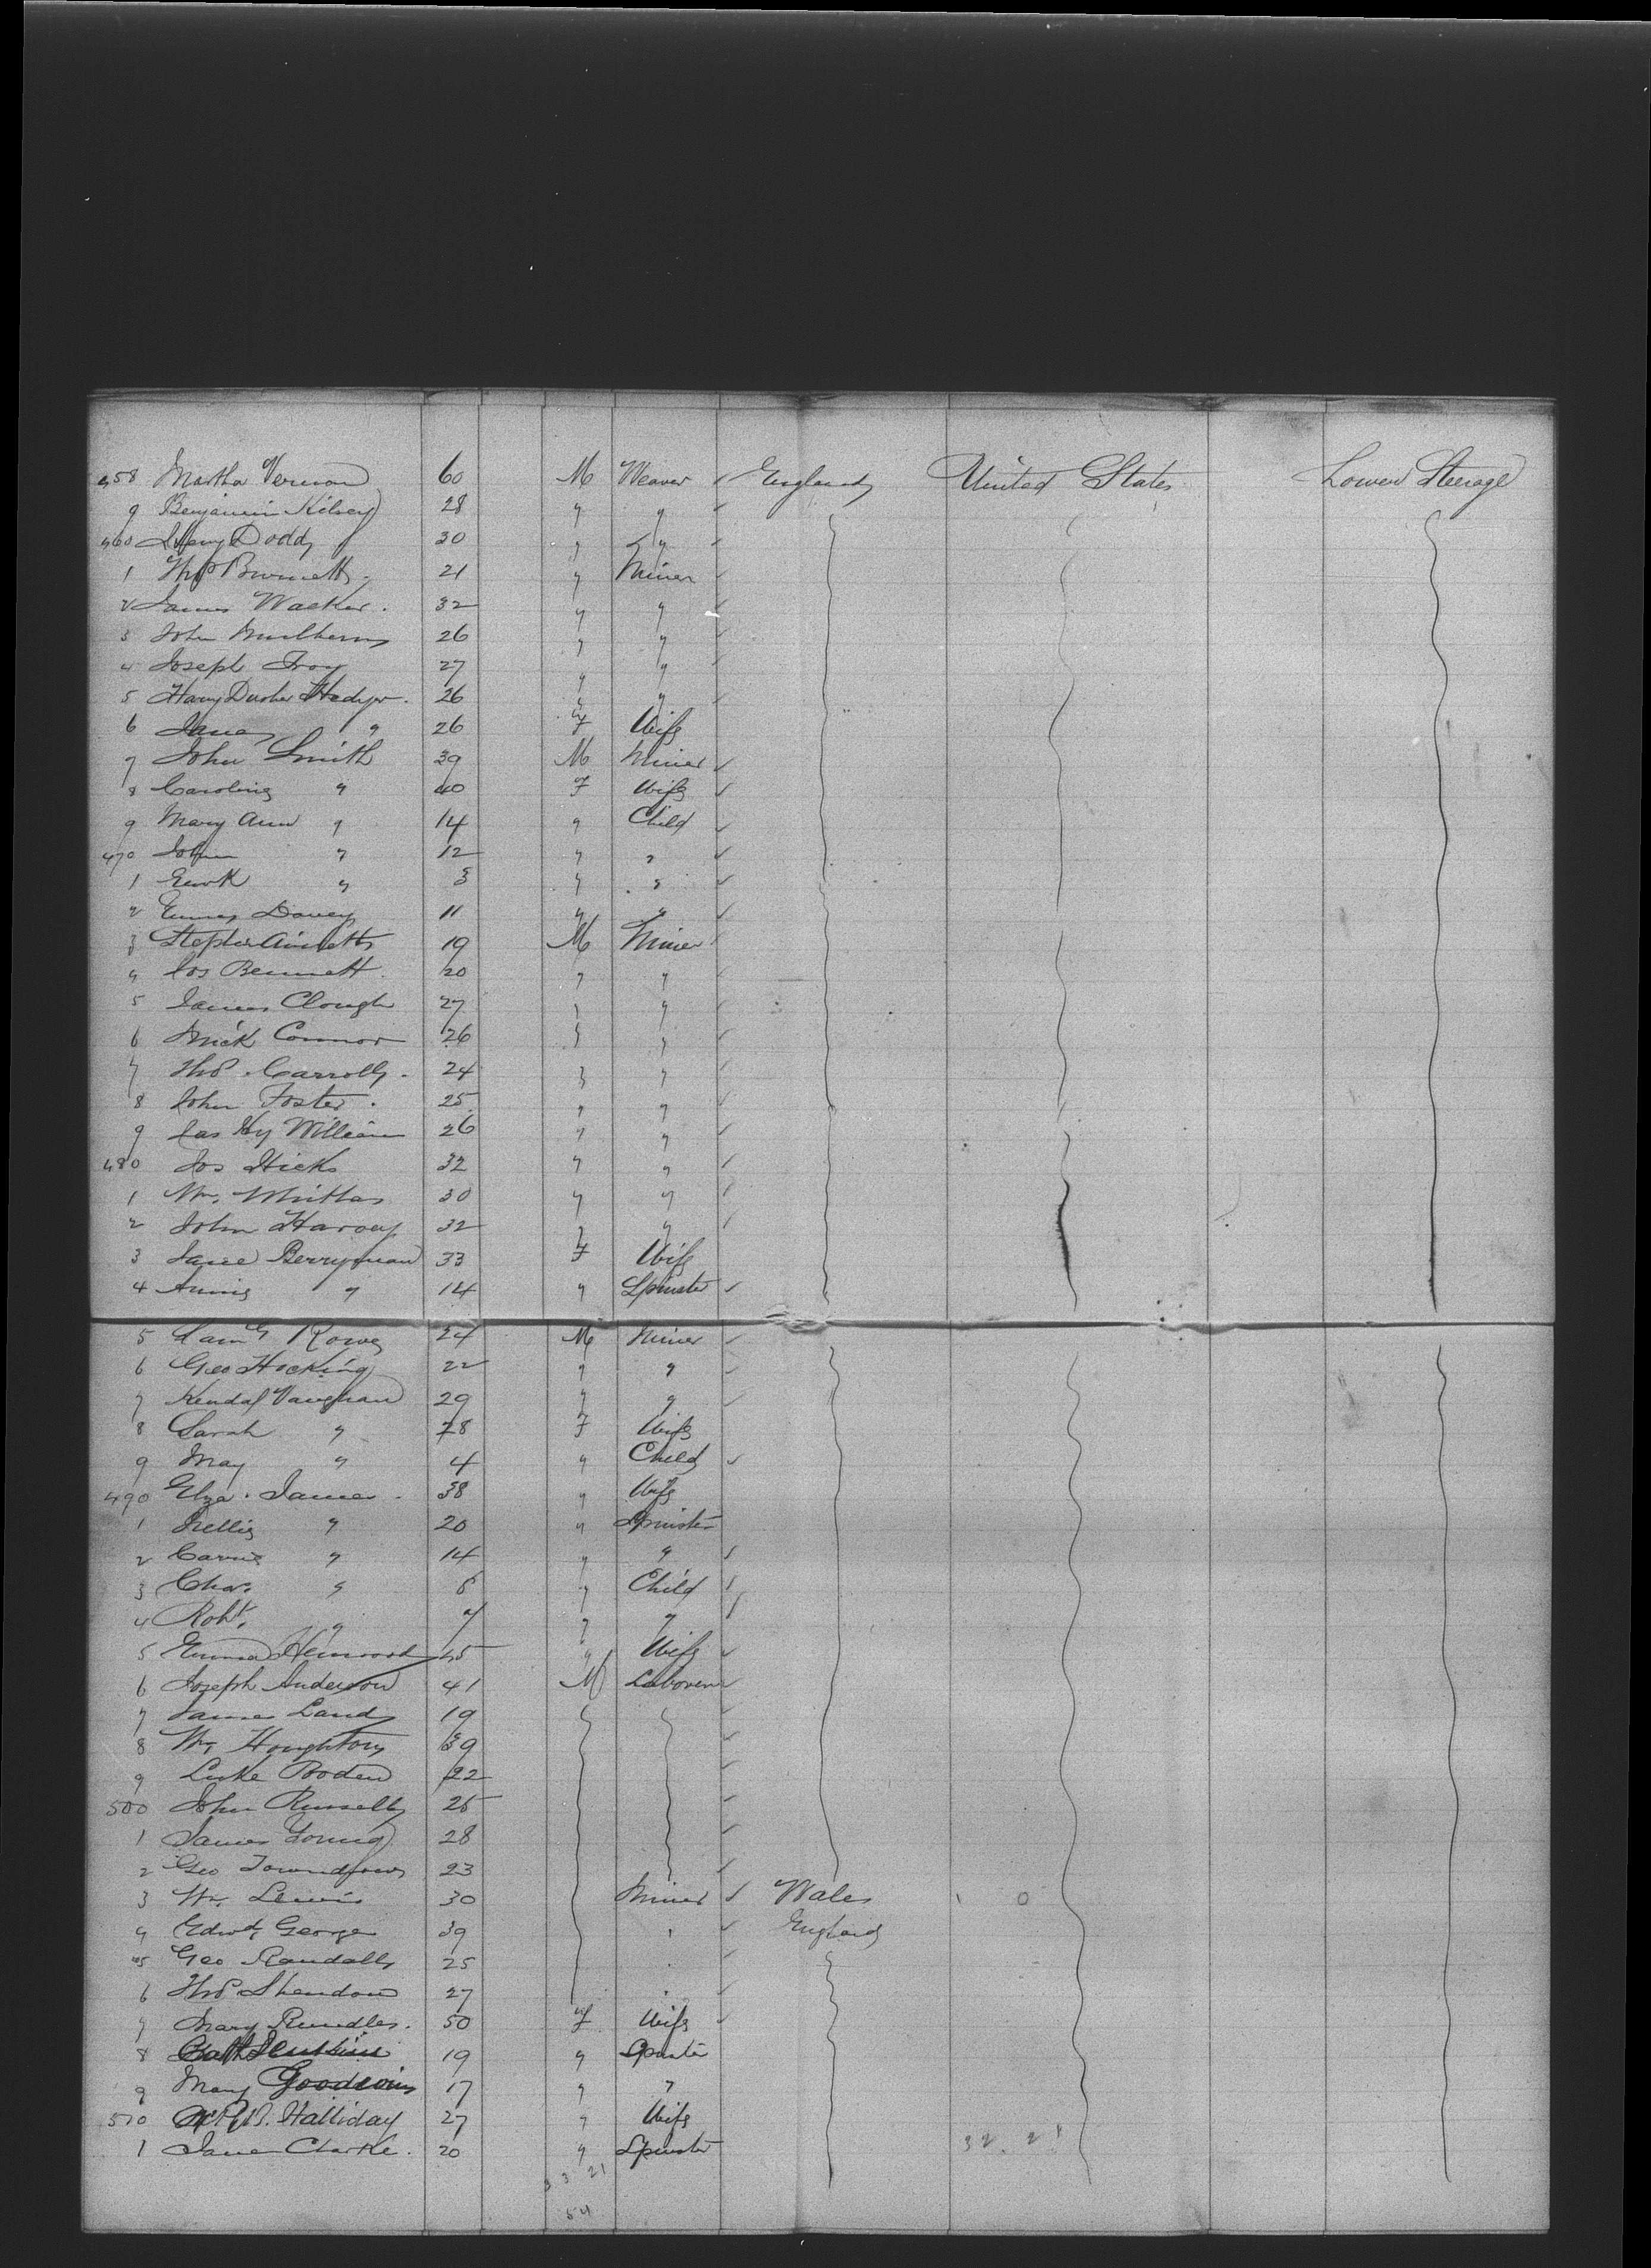 458 Martha Vernon 60 M Weaver England United States Lower Steerage
9 Benjamin Kilsey 28 " "
460 Henry Doddy 30 " "
1 Thos Burnett 21 " Miner
2 James Walker. 32 " "
3 John Mulhern 26 " "
4 Joseph Troy 27 " "
5 Harry Hedger. 26 " "
6 Jane " 26 F Wife
7 John Smith 39 M Miner
8 Caroline " 40 F Wife
9 Mary Ann " 14 " Child
470 John " 12 " "
1 " 3 " "
2 Emma Davey 11 " "
3 19 M Miner
4 Jos Bennett. 20 " "
5 James Clough 27 " "
6 Mick Connor 26 " "
7 Thos. Carroll. 24 " "
8 John Foster. 25 " "
9 Jas Hy William 26 " "
480 Jos Hicks 32 " "
1 Wm. 30 " "
2 John Harvey 32 " "
3 Jane Berryman 33 F Wife
4 Annie " 14 " Spinster
5 Saml Rowe 24 M Miner
6 Geo Hocking 22 " "
7 Kendal Vaughan 29 " "
8 Sarah " 28 F Wife
9 May " 4 " Child
490 Elza. James. 38 " Wife
1 Nellie " 20 " Spinster
2 Carrie " 14 " "
3 Chas. " " Child
4 Robt. " " "
5 Emma Henwood 45 " Wife
6 Joseph Anderson 41 M Laborer
7 James Land 19
8 Wm Houghton 39
9 Luke Boden 22
500 John Russell 25
1 James Young 28
2 Geo Towndrow 23
3 Wm. Lewis 30 Miner Wales
4 Edwd George 39 " England
5 Geo Randall 25
6 Thos Shendon 27
7 Mary Rundles. 50 F Wife
8 Cath Jenkins 19 " Spinster
9 Mary Goodwin 17 " "
510 Halliday 27 " Wife
1 Jane Clarke. 20 " Spinster
32. 21
33 21
54